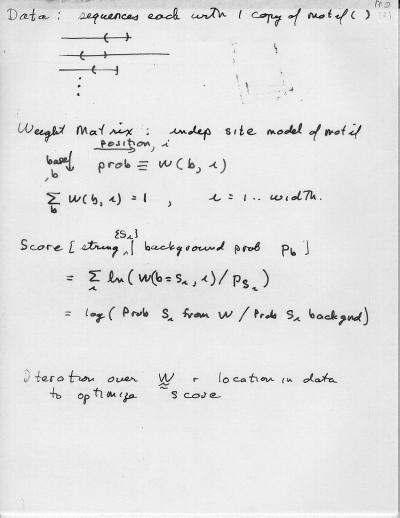 Data: sequences each with 1 copy of motif ( )
Weight Matrix: indep site model of motif
position, i
base, b
prob ≡ W(b, i)
∑_b W(b, i) = 1 , i = 1 .. width.
{S_i}
Score [ string, | background prob P_b ]
= ∑_i ln ( W(b=S_i, i) / P_{S_i} )
= log ( Prob S_i from W / Prob S_i backgnd )
Iteration over W + location in data
to optimize score